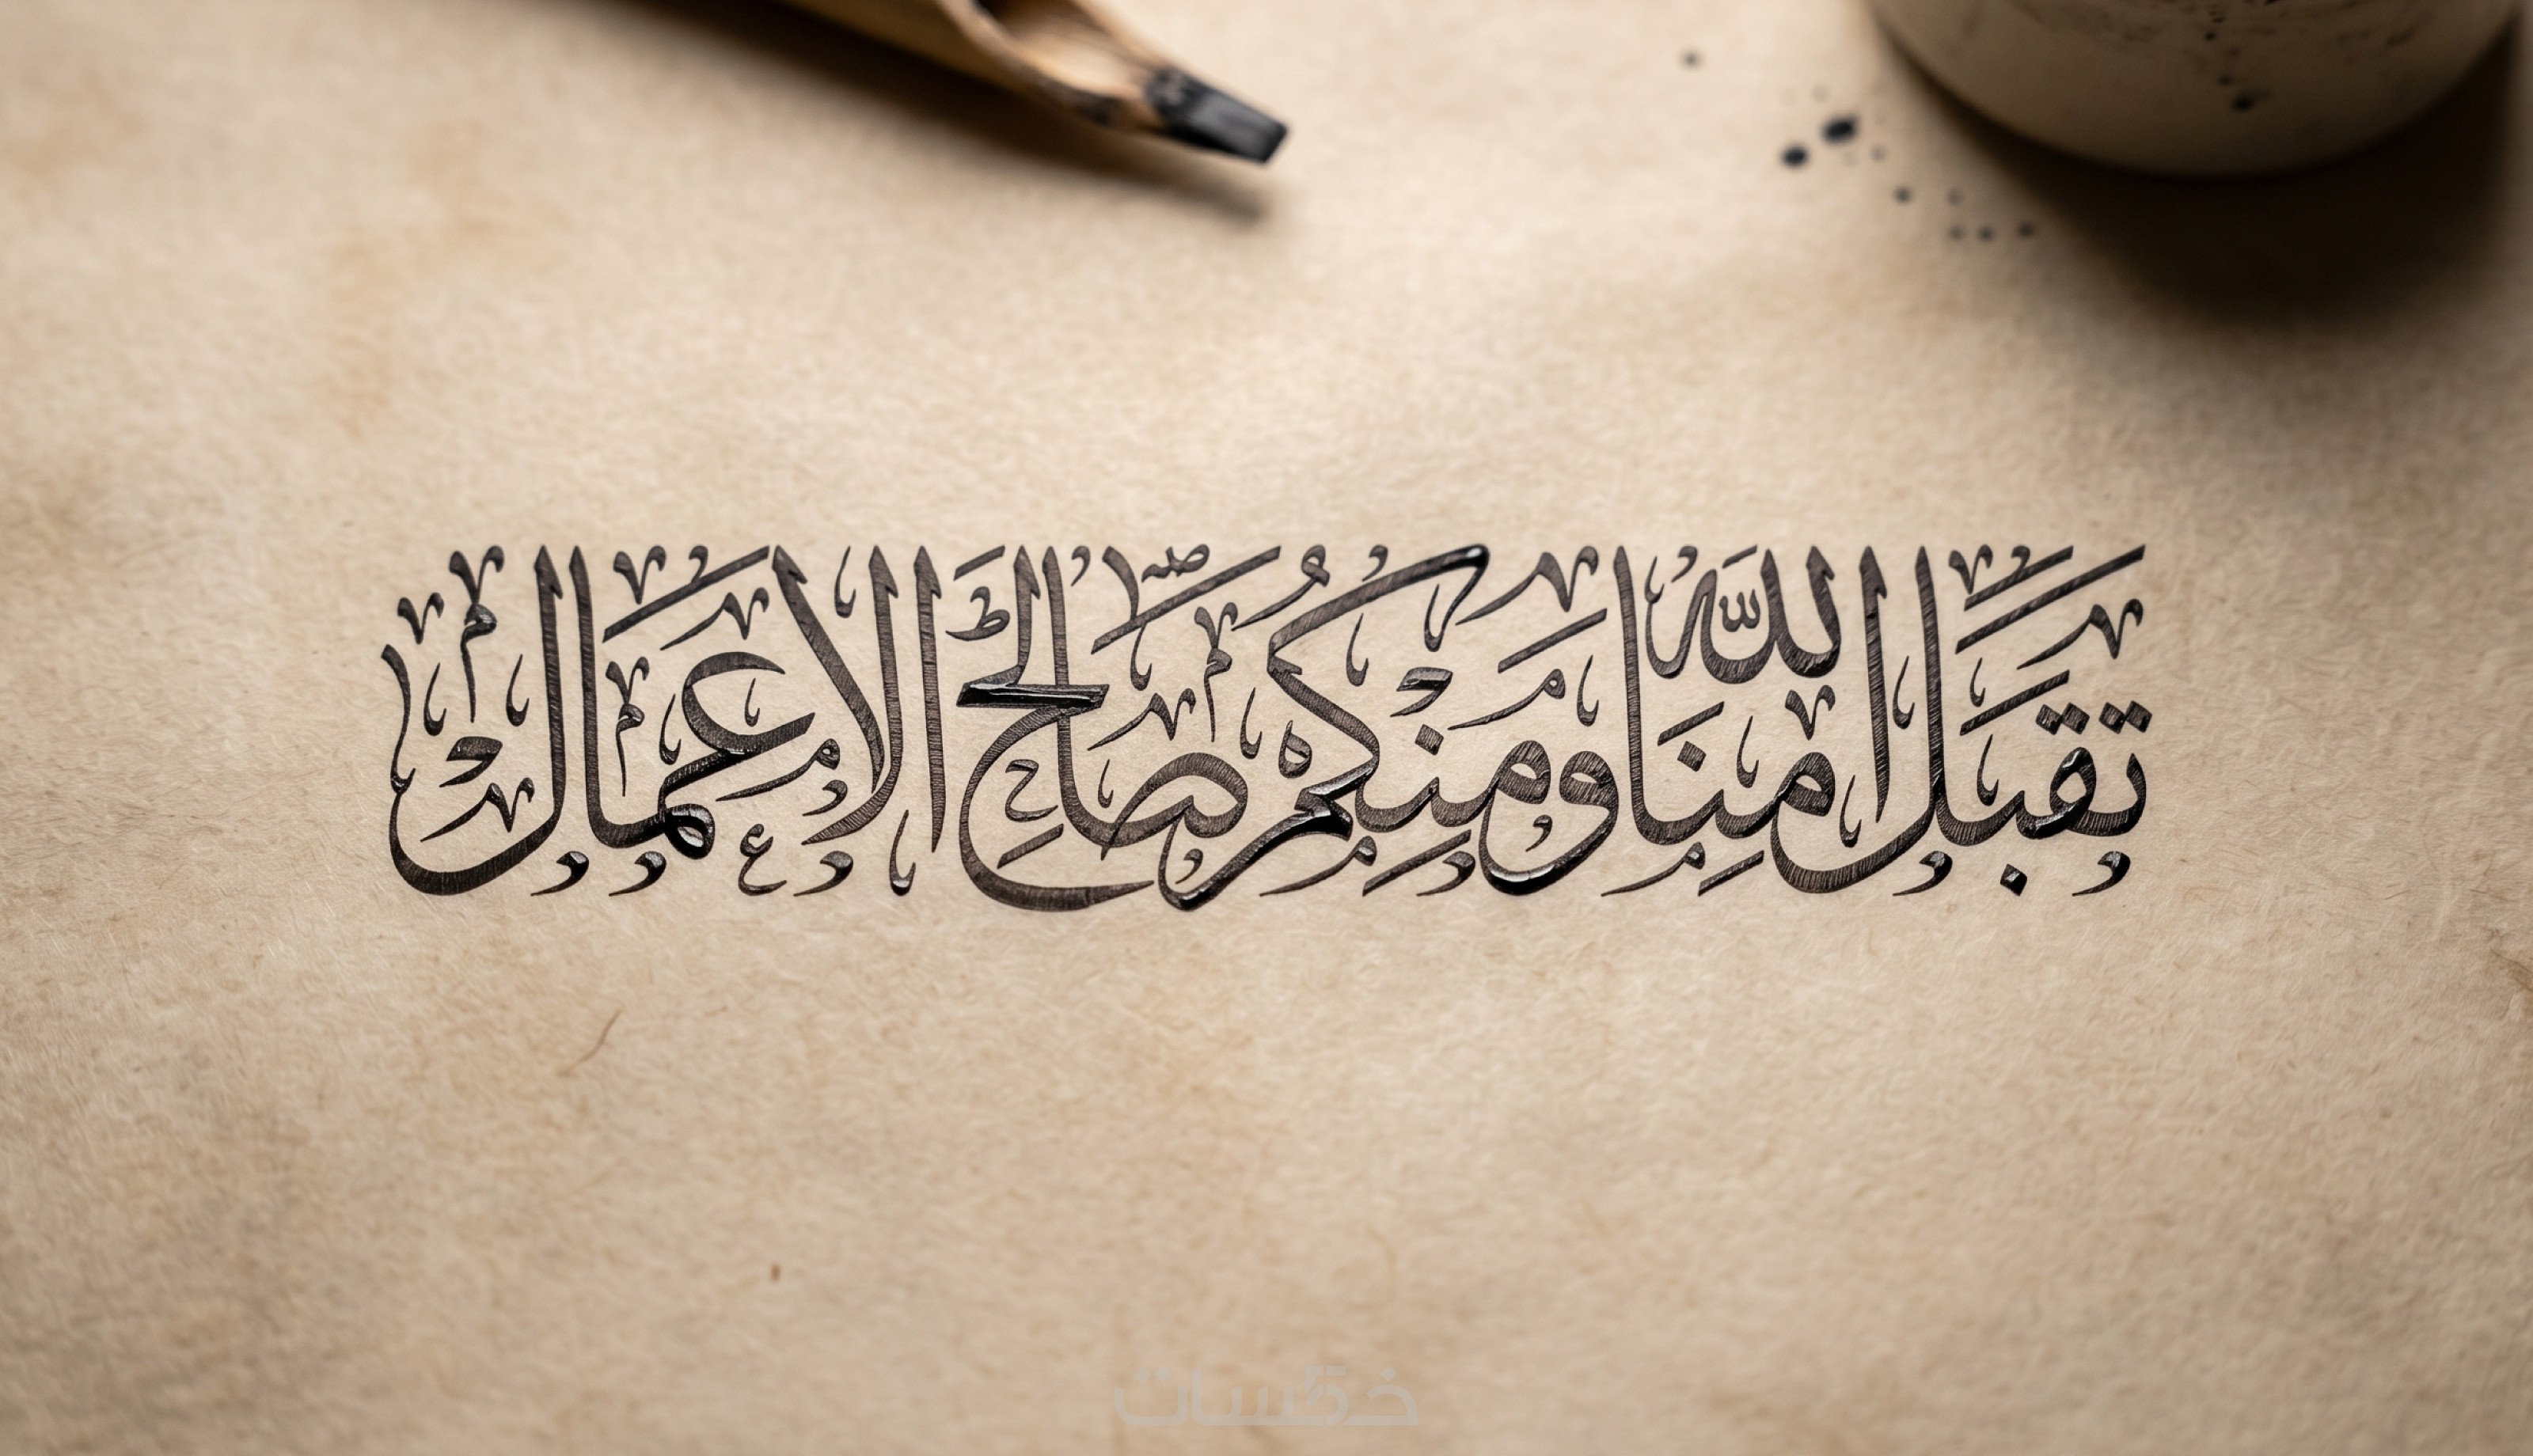 تقبل الله منا ومنكم صالح الاعمال
خمسات